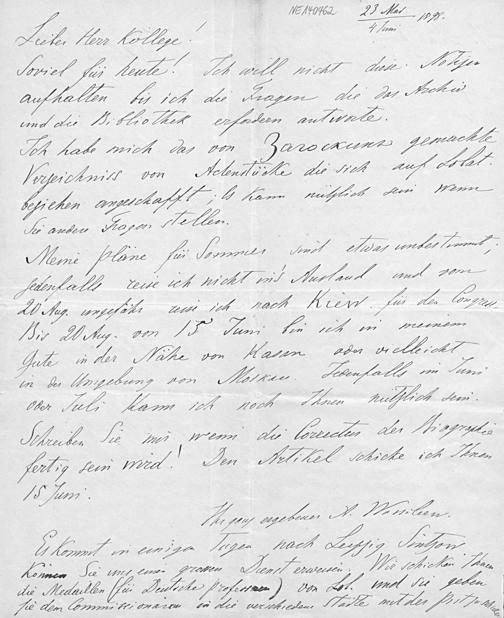 NE140462
23 Mai
4 Juni 1898.
Lieber Herr Kollege!
Soviel für heute! Ich will nicht diese Notizen
aufhalten bis ich die Fragen die das Archiv
und die Bibliothek erfordern antworte.
Ich habe mich das von Загоскинъ gemachte
Verzeichniss von Actenstücke die sich auf Lobat.
beziehen angeschafft; Es kann nützlich sein wenn
Sie andere Fragen stellen.
Meine Pläne für Sommer sind etwas unbestimmt,
jedenfalls reise ich nicht in's Ausland und vom
20 Aug. ungefähr reise ich nach Kiew für den Congress.
Bis 20 Aug. von 15 Juni bin ich in meinem
Gute in der Nähe von Kasan oder vielleicht
in der Umgebung von Moskau. Jedenfalls im Juni
oder Juli kann ich noch Ihnen nützlich sein.
Schreiben Sie mir wenn die Correctur der Biographie
fertig sein wird! Den Artikel schicke ich Ihnen
15 Juni.
Ihr ganz ergebener A. Wassilieff.
Es kommt in einigen Tagen nach Leipzig Sintsow
Können Sie uns einen grossen Dienst erweisen. Wir schicken Ihnen
die Medaillen (für Deutsche Professoren) von Lob. und Sie geben
sie dem Commissionären in die verschiedene Städte mit der Post